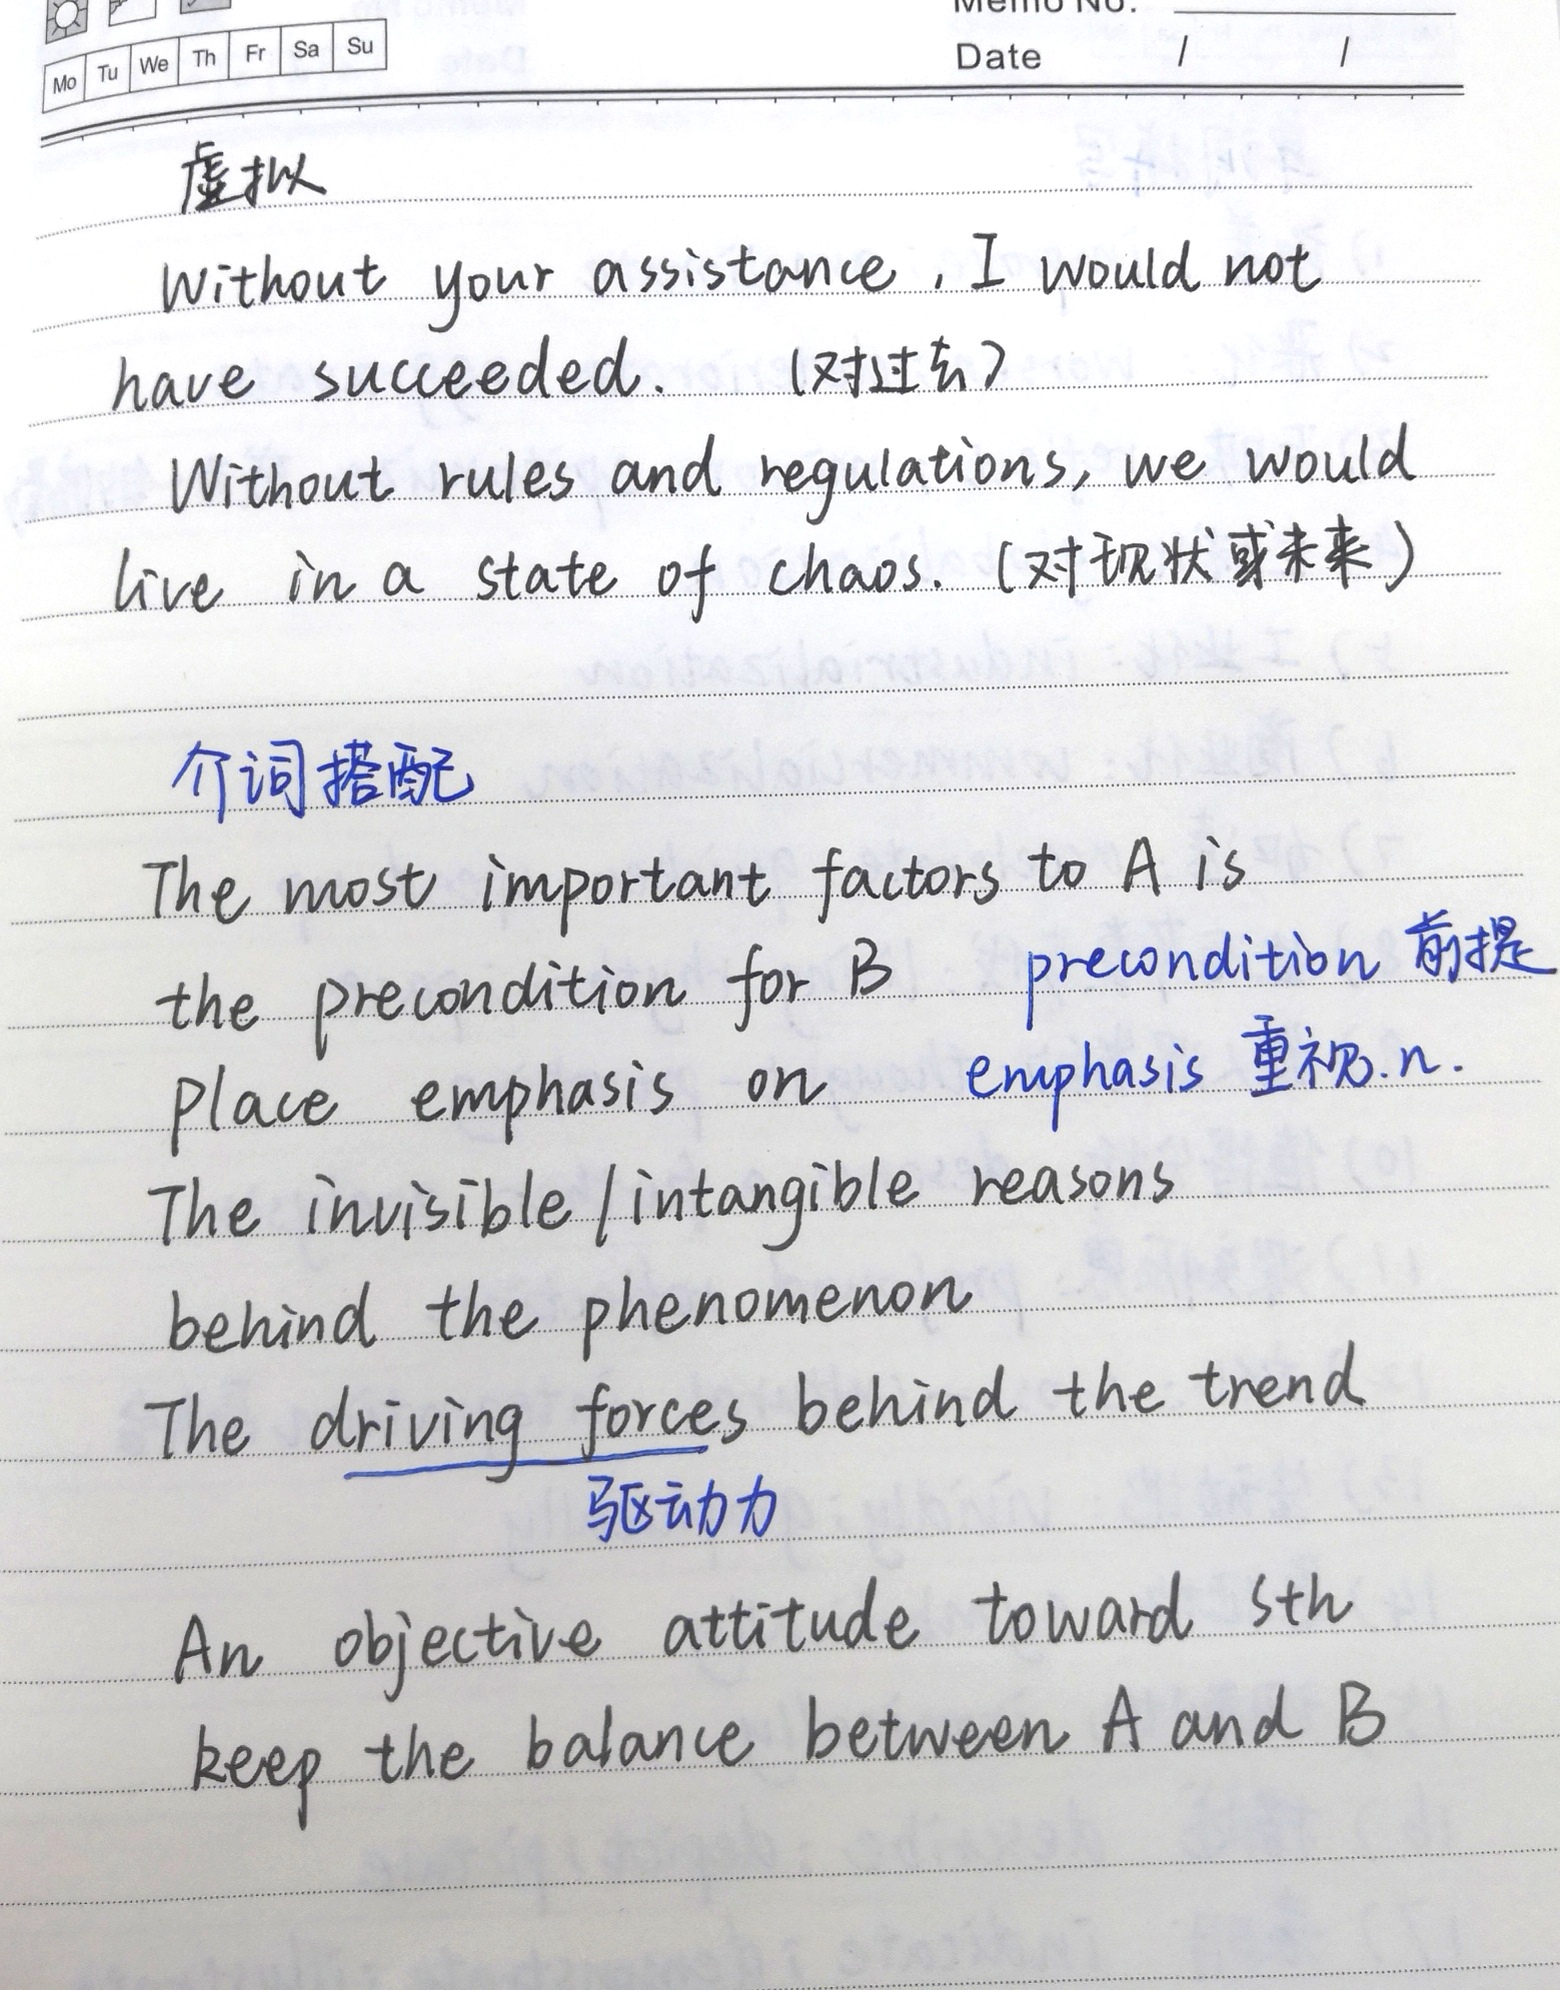 Mo Tu We Th Fr Sa Su
Memo No.
Date / /
虚拟
Without your assistance, I would not
have succeeded. (对过去)
Without rules and regulations, we would
live in a state of chaos. (对现状或未来)
介词搭配
The most important factors to A is
the precondition for B precondition 前提
Place emphasis on emphasis 重视.n.
The invisible/intangible reasons
behind the phenomenon
The driving forces behind the trend
驱动力
An objective attitude toward sth
keep the balance between A and B